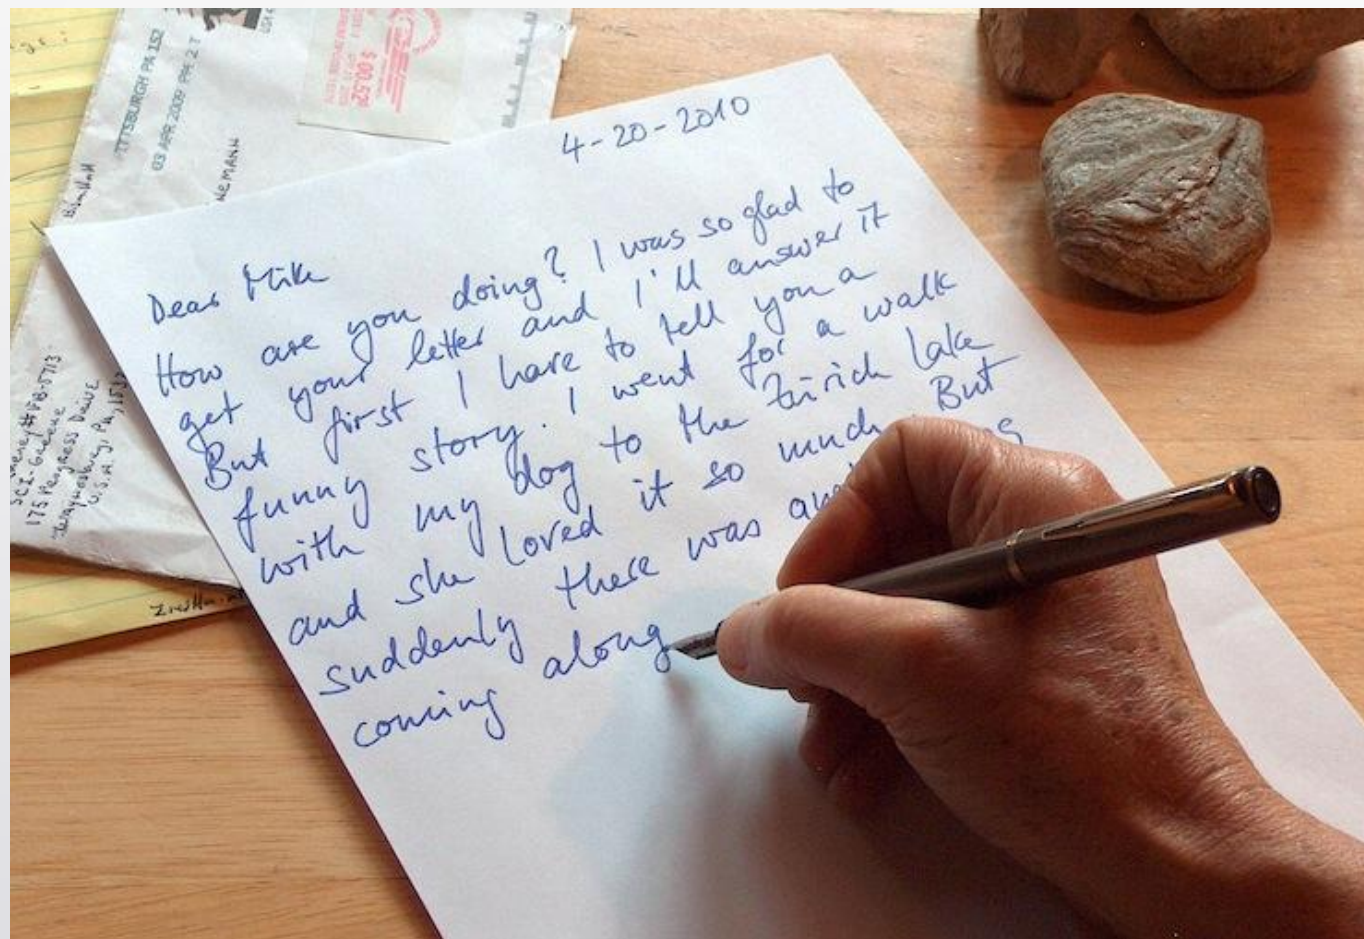 PITTSBURGH PA 152
03 APR 2009 PM 2 T
$ 00.52⁰
NEMANN
SCI-Greene
175 Progress Drive
U.S.A.
4-20-2010
Dear Mike
How are you doing? I was so glad to
get your letter and I'll answer it
But first I have to tell you a
funny story. I went for a walk
with my dog to the Zürich Lake
and she loved it so much. But
suddenly there was
coming along